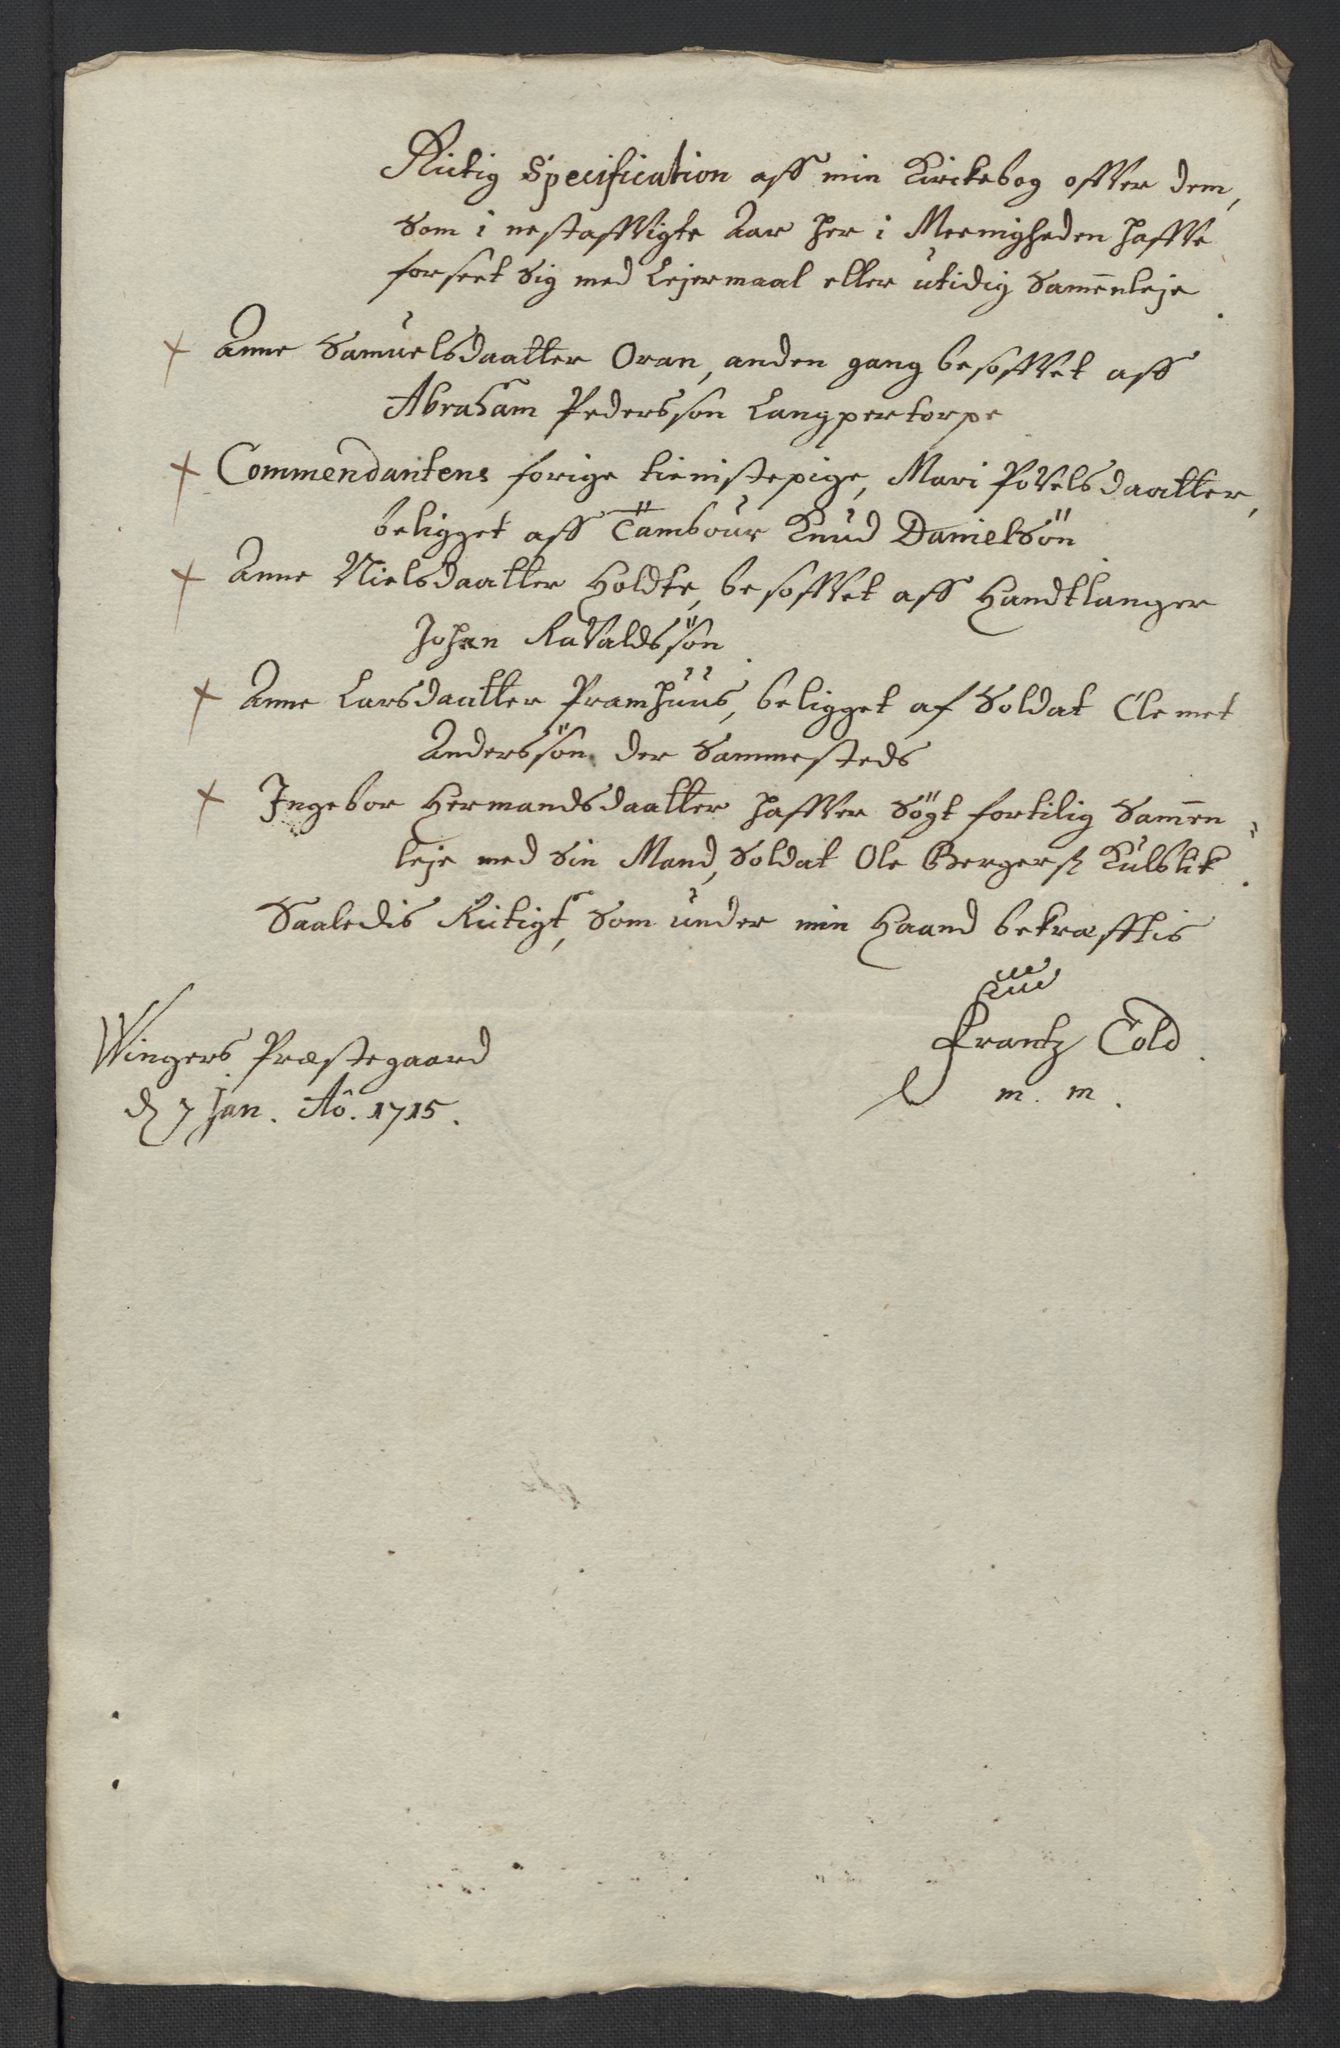 Rictig Specification aff min Kirckebog offver dem,
Som i nestaffvigte Aar her i Meenigheden haffve
forseet Sig med Lejermaal eller utidig Samenleje.
+ Anne Samuelsdaatter Oran, anden gang besoffvet aff
Abraham Pedersson Langpertorpe
+ Commendantens forige tienistepige, Mari Povelsdaatter,
beligget aff Tambour Knud Danielsön
+ Anne Nielsdaatter Holdte, besoffvet aff Handtlanger
Johan Ravaldssön.
+ Anne Larsdaatter Pramhuus, beligget af Soldat Clemet
Anderssön der Sammesteds
+ Ingebor Hermandsdaatter haffver Sögt fortilig Samen-
leje med Sin Mand, Soldat Ole Bergerss Kulblik.
Saaledis Rictigt, Som under min Haand bekræfftis
Wingers Præstegaard
d 7 Jan. Aô. 1715.
Frantz Cold.
m. m.